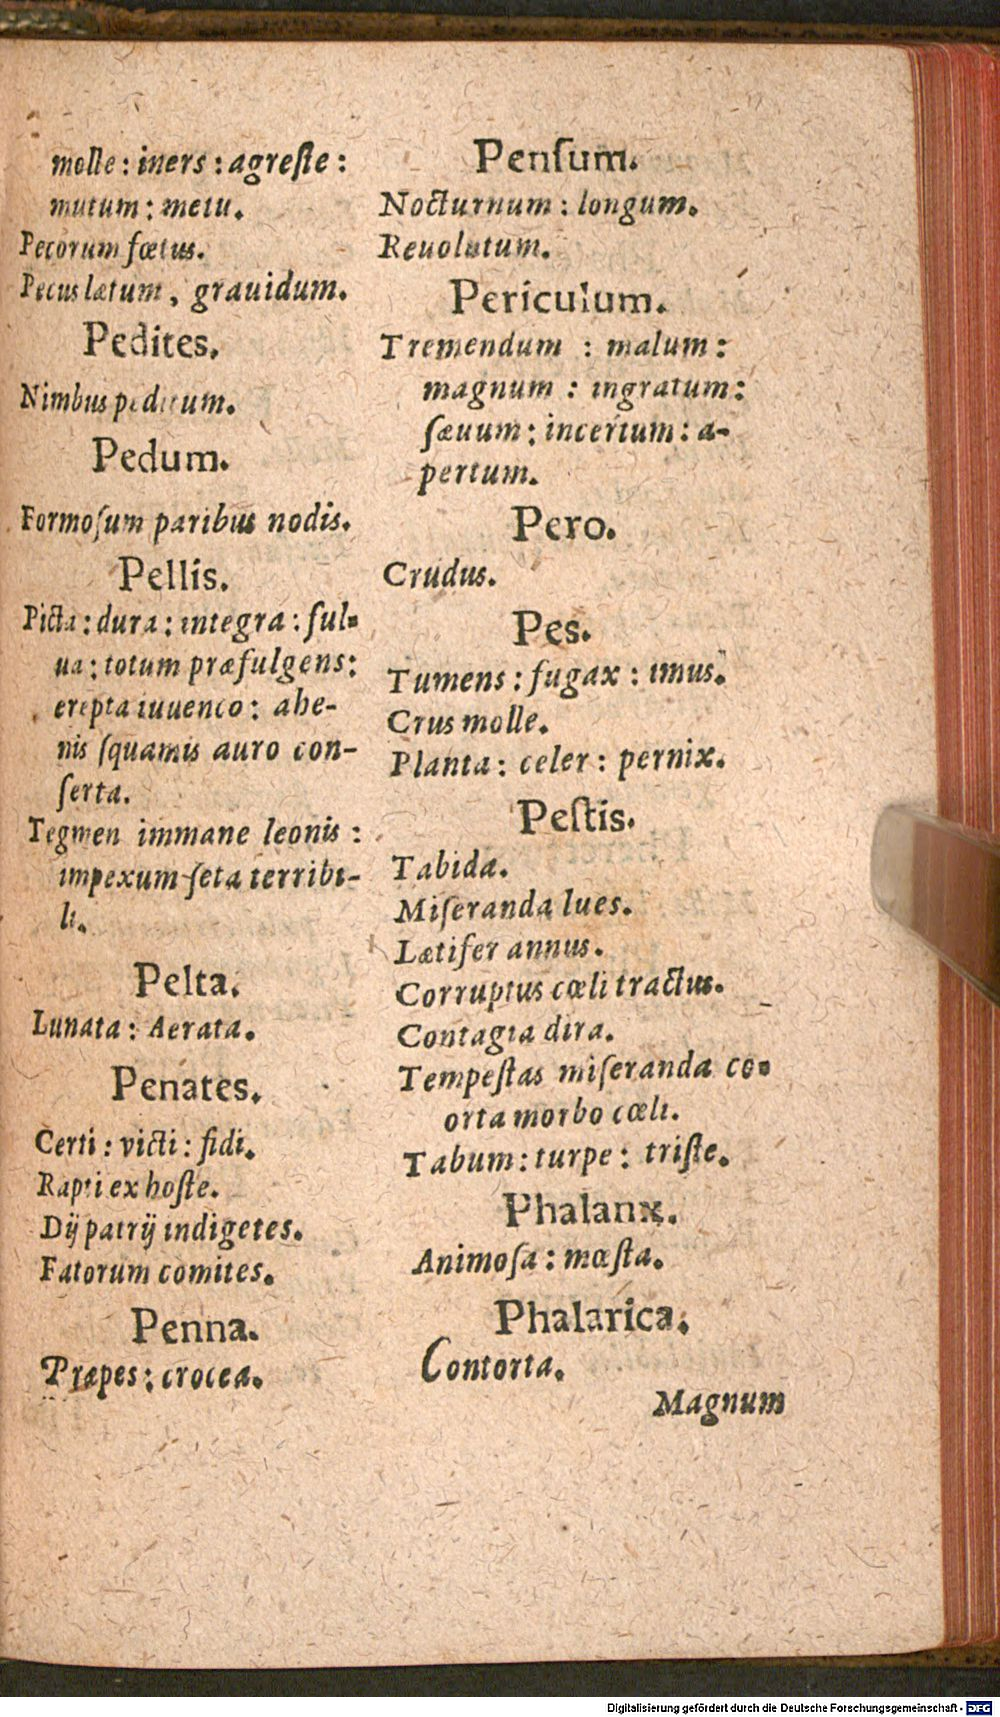 molle : iners : agreſte :
mutum : metu.
Pecorum fœtus.
Pecus lætum, grauidum.
Pedites.
Nimbus peditum.
Pedum.
Formoſum paribus nodis.
Pellis.
Picta : dura : integra : ful-
ua : totum præfulgens :
erepta iuuenco : ahe-
nis ſquamis auro con-
ſerta.
Tegmen immane leonis :
impexum ſeta terribi-
li.
Pelta.
Lunata : Aerata.
Penates.
Certi : victi : fidi.
Rapti ex hoſte.
Dij patrij indigetes.
Fatorum comites.
Penna.
Præpes : crocea.
Penſum.
Nocturnum : longum.
Reuolutum.
Periculum.
Tremendum : malum :
magnum : ingratum :
ſæuum : incertum : a-
pertum.
Pero.
Crudus.
Pes.
Tumens : fugax : imus.
Crus molle.
Planta : celer : pernix.
Peſtis.
Tabida.
Miſeranda lues.
Lætifer annus.
Corruptus cœli tractus.
Contagia dira.
Tempeſtas miſeranda co-
orta morbo cœli.
Tabum : turpe : triſte.
Phalanx.
Animoſa : mœſta.
Phalarica.
Contorta.
Magnum
Digitalisierung gefördert durch die Deutsche Forschungsgemeinschaft - DFG